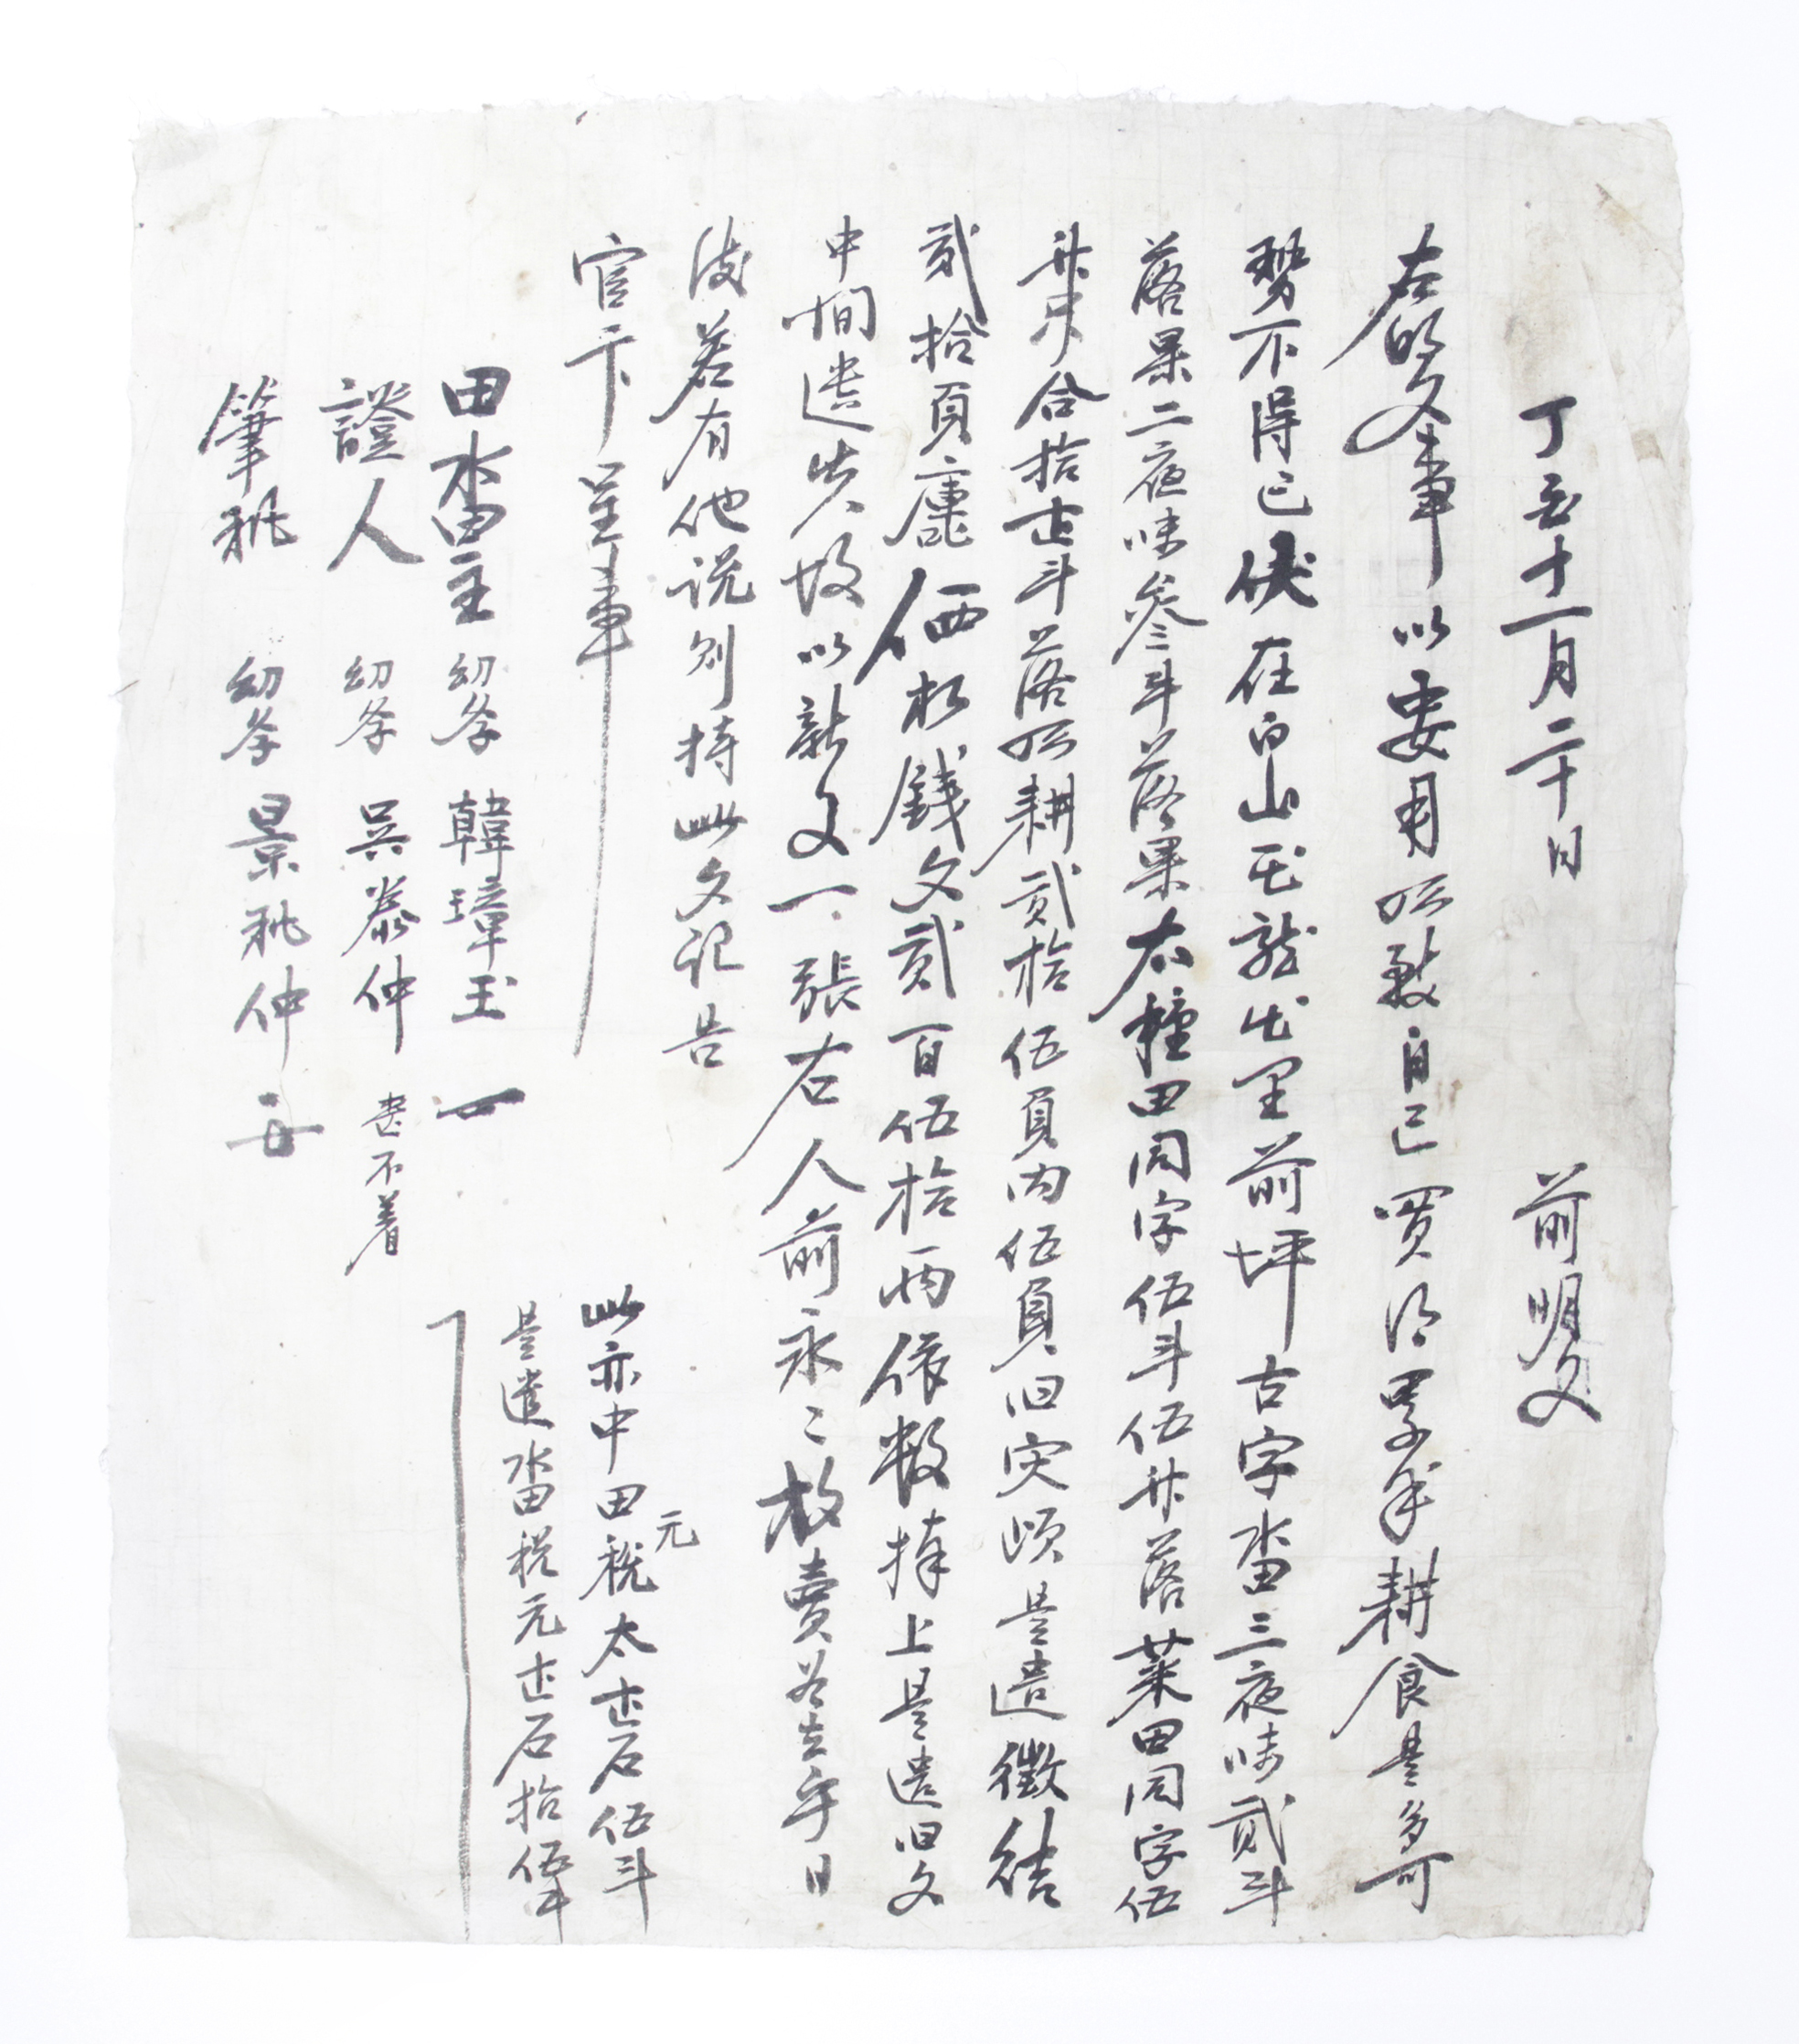 丁丑十一月二十日 前明文
右明文事以要用所致自己買得累年耕食是多可
勢不得已伏在白山面龍出里前坪古字畓三夜味貳斗
落果二夜味參斗落果太種田同字伍斗伍升落菜田同字伍
升落合拾壹斗落所耕貳拾伍負內伍負旧災頉是遣徵結
貳拾負庫価折錢文貳百伍拾兩依數捧上是遣旧文
中間遺失故以新文一張右人前永〻放賣爲去乎日
後若有他說則持此文記告
官卞呈事
田畓主 幼學 韓璋玉
證人 幼學 吳泰仲 喪不着
筆執 幼學 景秋仲
此亦中田稅元太壹石伍斗
是遣畓稅元壹石拾伍斗